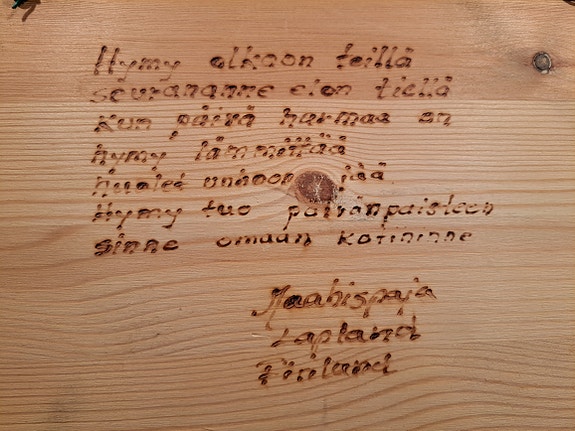 Hymy olkaon teillä
seurananne elon tiellä
Kun päivä harmaa on
hymy lämmittää
huolet unhoon jää
Hymy tuo päivänpaisteen
sinne omaan kotininne
Maahispaja
Lapland
Finland